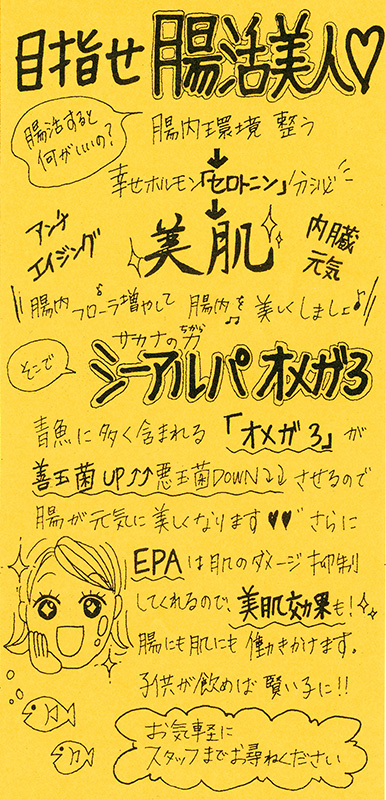 目指せ 腸活美人♡
腸活すると
何がいいの?
腸内環境 整う
↓
幸せホルモン「セロトニン」分泌
↓
アンチ
エイジング
美肌
内臓
元気
腸内フローラを増やして 腸内を美しくしましょ♪
そこで
サカナの力
ちから
シーアルパ オメガ3
青魚に多く含まれる「オメガ3」が
善玉菌UP↑↑悪玉菌DOWN↓↓させるので
腸が元気に美しくなります♥♥ さらに
EPAは肌のダメージ抑制
してくれるので、美肌効果も!
腸にも肌にも働きかけます。
子供が飲めば賢い子に!!
お気軽に
スタッフまでお尋ねください